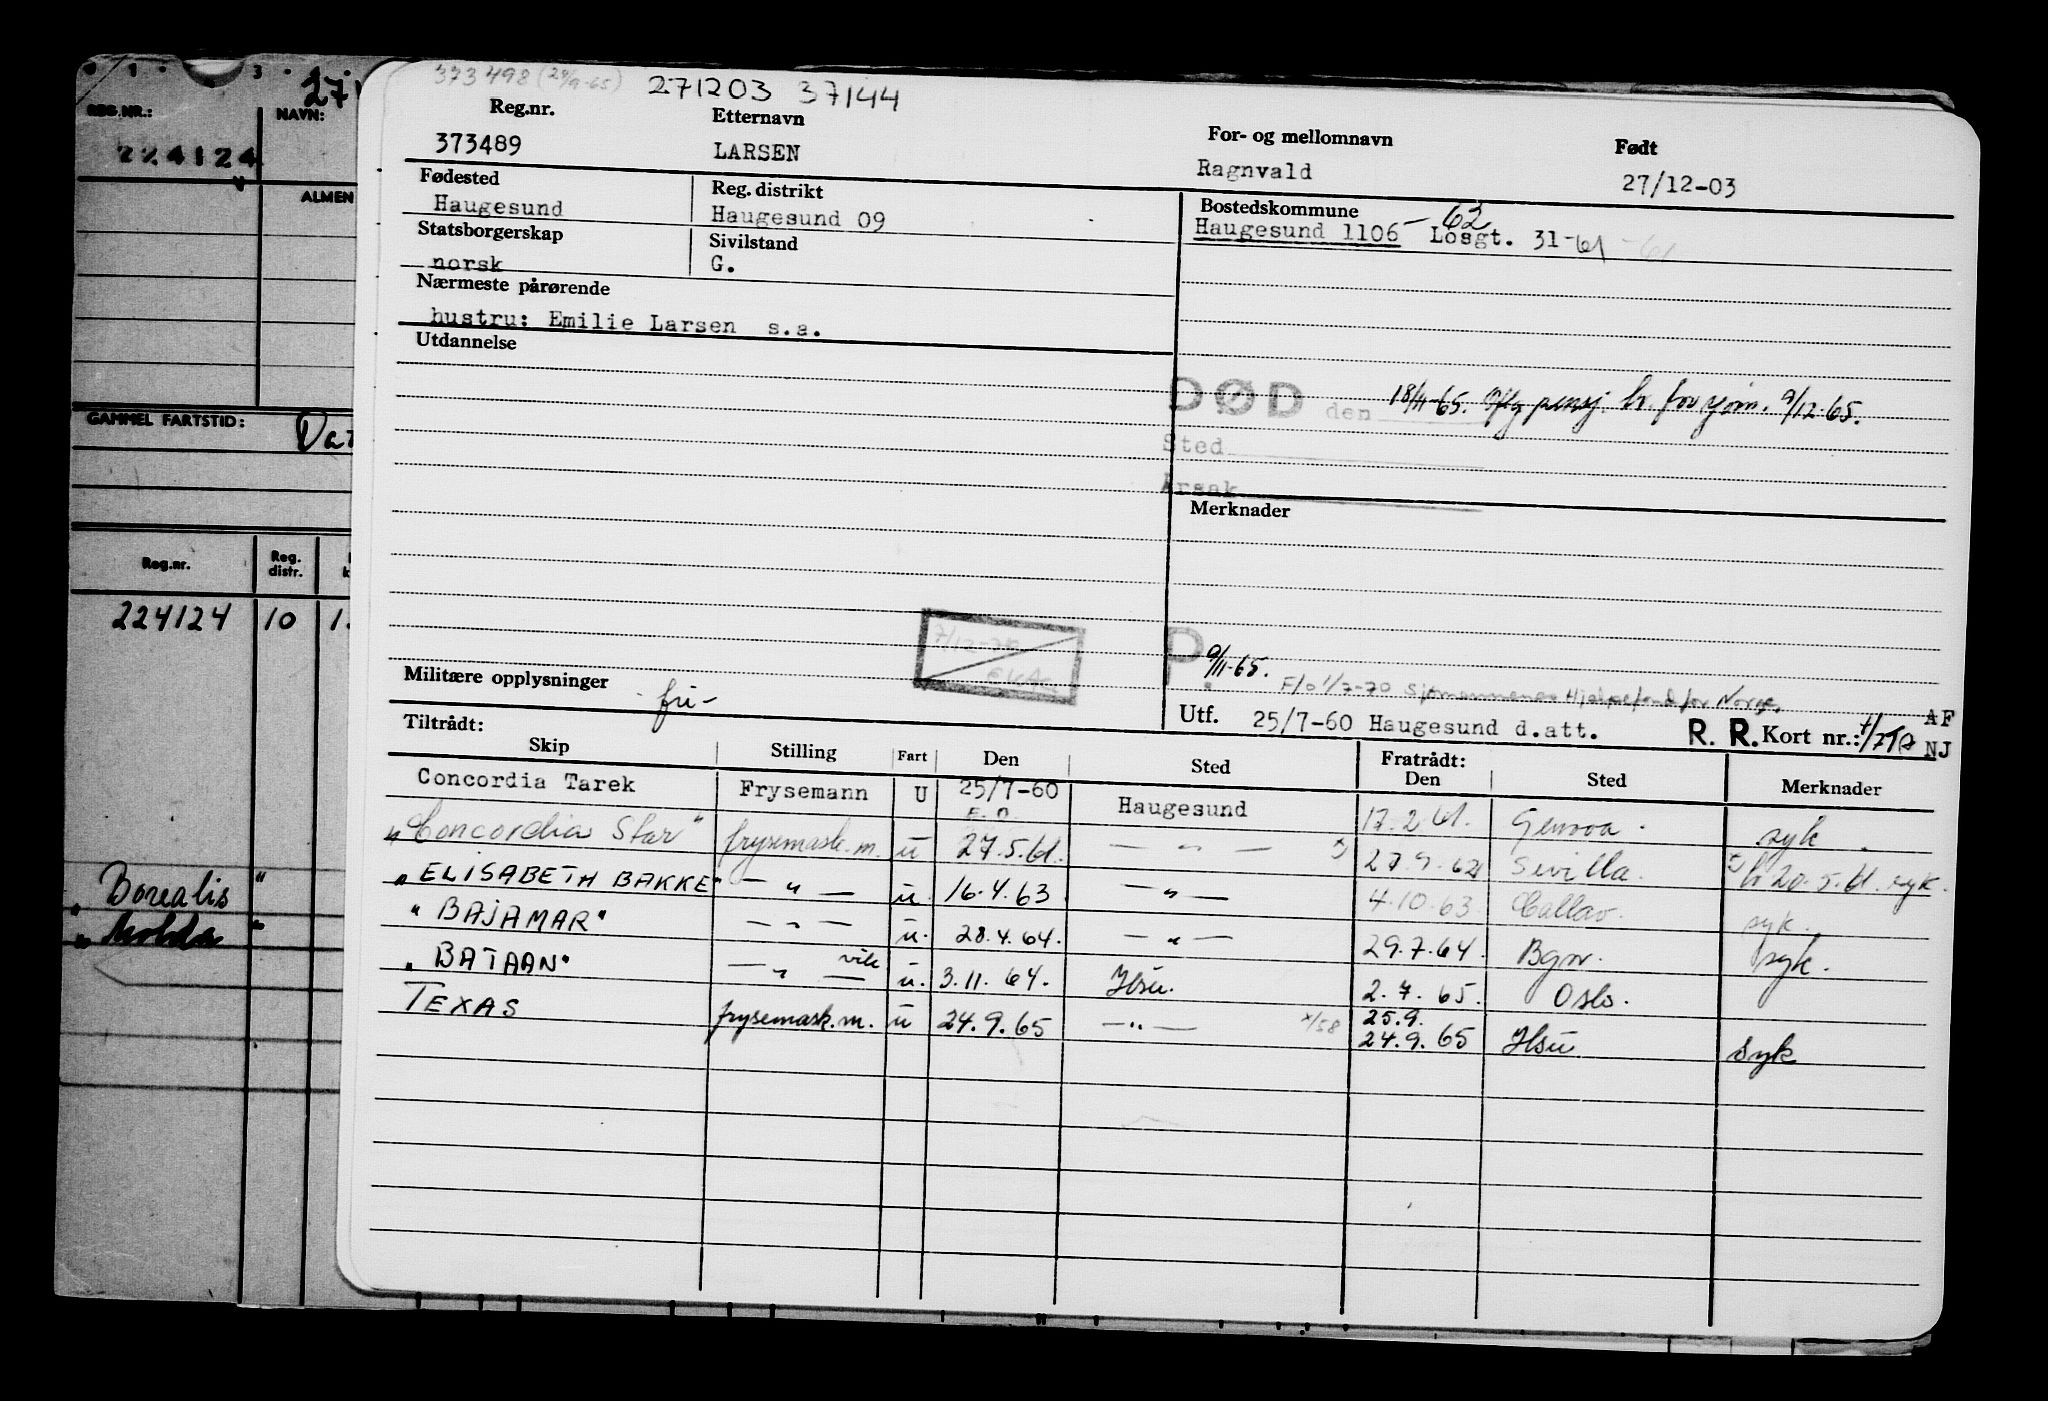 373498 (24/9-65) 271203 37144
Reg.nr. Etternavn For- og mellomnavn Født
373489 LARSEN Ragnvald 27/12-03
Fødested Reg. distrikt Bostedskommune
Haugesund Haugesund 09 Haugesund 1106 - 62 Losgt. 31 -61 -61
Statsborgerskap Sivilstand
norsk G.
Nærmeste pårørende
hustru: Emilie Larsen s.a.
Utdannelse
DØD den 18/11-65. pensj. br. 9/12.65.
Sted
Årsak
Merknader
7/12-70
P. 9/11-65.
F/o 1/7-70 Sjømannenes Hjelpefond for Norge.
Militære opplysninger - fri -
Utf. 25/7-60 Haugesund d.att. R. R. Kort nr.: AF
NJ
Tiltrådt: Fratrådt:
Skip Stilling Fart Den Sted Den Sted Merknader
Concordia Tarek Frysemann U 25/7-60 Haugesund 17.2.61. Genova. syk.
"Concordia Star" frysemask.m. u 27.5.61. — " — x) 27.9.62 Sevilla. x) br 20.5.61. syk.
"ELISABETH BAKKE" — " — u. 16.4.63 — " — 4.10.63 Callao. syk.
"BAJAMAR" — " — u. 28.4.64. — " — 29.7.64 Bgn. syk.
"BATAAN" — " — vik u. 3.11.64. Hsu. 2.7.65. Oslo.
TEXAS frysemask.m. u 24.9.65 — " — x/58 25.9.
24.9.65 Hsu syk
3
REG.NR.: NAVN: 271
224124
ALMEN
GAMMEL FARTSTID:
Reg.nr. Reg. distr.
224124 10 1.
"Borealis"
"Molda"